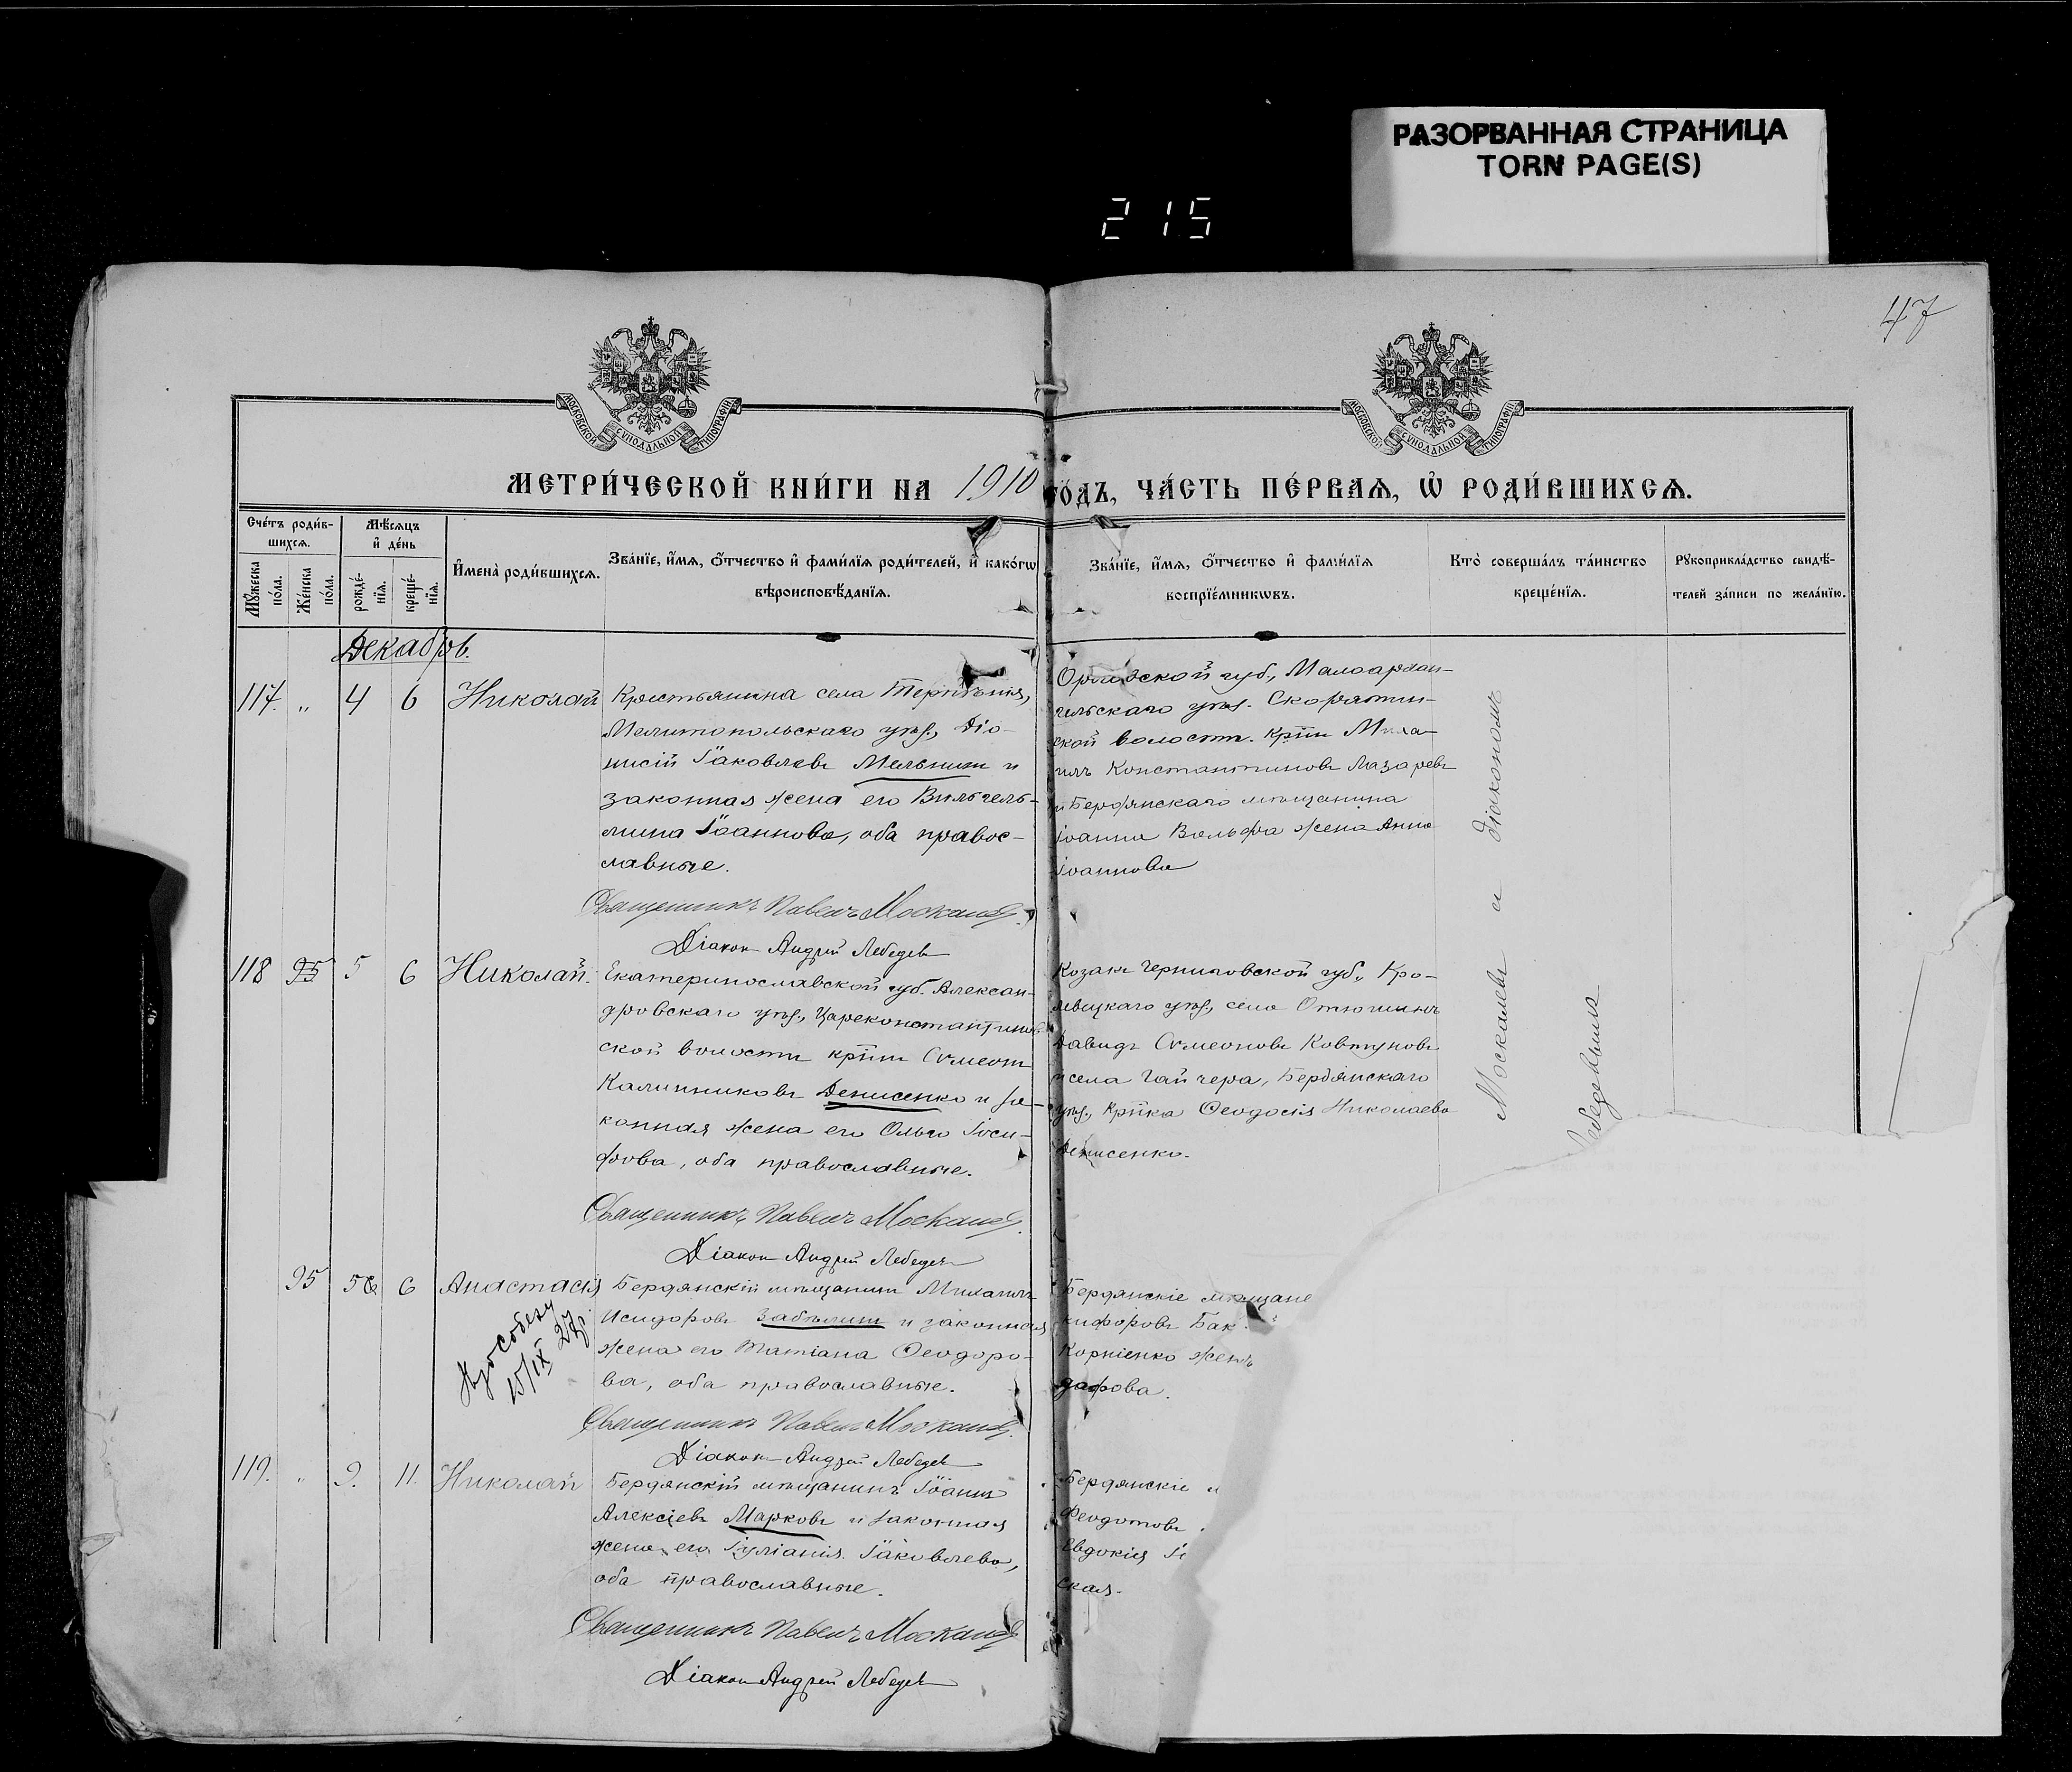 РАЗОРВАННАЯ СТРАНИЦА
TORN PAGE(S)
215
47
МОСКОВСКОЙ СѴНОДАЛЬНОЙ ТИПОГРАФІИ
МОСКОВСКОЙ СѴНОДАЛЬНОЙ ТИПОГРАФІИ
МЕТРИ́ЧЕСКОЙ КНИ́ГИ НА 1910 го́дъ, ЧА́СТЬ ПЕ́РВАѦ, Ѡ РОДИ́ВШИХСѦ.
Сче́тъ роди́в-
шихсѧ.
Мꙋ́жеска по́ла.
Же́нска по́ла.
Мѣ́сѧцъ
и де́нь
рожде́-
нїѧ.
креще́-
нїѧ.
Имена̀ роди́вшихсѧ.
Зва́нїе, и́мѧ, о́тчество и фами́лїѧ роди́телей, и како́гѡ
вѣроисповѣ́данїѧ.
Зва́нїе, и́мѧ, о́тчество и фами́лїѧ
воспрїе́мникѡвъ.
Кто̀ соверша́лъ та́инство
креще́нїѧ.
Рꙋкоприкла́дство свидѣ́-
телей за́писи по жела́нїю.
Декабрь.
117. „ 4 6 Николай
Крестьянина села Терпѣнія,
Мелитопольскаго уѣз., Діо-
нисій Іаковлевъ Мельник и
законная жена его Вильгель-
мина Іоаннова, оба правос-
лавные.
Священникъ Павелъ Москалевъ
Діакон Андрей Лебедев
Орловской губ., Малоархан-
гельскаго уѣз. Скорятин-
ской волости. крпн Миха-
илъ Константиновъ Лазаревъ
и Бердянскаго мѣщанина
Іоанна Вольфа жена Анна
Іоаннова
118 95 5 6 Николай.
Екатеринославской губ. Алексан-
дровскаго уѣз., Цареконстантинов
ской волости крпнъ Сѵмеон
Калинниковъ Денисенко и за-
конная жена его Ольга Іоси-
фова, оба православные.
Священникъ Павелъ Москалевъ
Діакон Андрей Лебедев
Козакъ Черниговской губ., Кро-
левецкаго уѣз., села
Давидъ Сѵмеоновъ Ковтуновъ
и села Гайчера, Бердянскаго
уѣз., крпнка Ѳеодосія Николаева
Денисенко.
Москалевъ с діакономъ
Лебедевымъ
95 5 6 Анастасія
Бердянскій мѣщанин Михаилъ
Исидоровъ Забѣлин и законная
жена его Татіана Ѳеодоро-
ва, оба православные.
Священникъ Павелъ Москалевъ
Діакон Андрей Лебедев
15/IX 27
Бердянскіе мѣщане
кифоровъ Бак
Корніенко жена
119. „ 9. 11. Николай
Бердянскій мѣщанинъ Іоанн
Алексіевъ Марковъ и законная
жена его Іуліанія Іаковлева,
оба православные.
Священникъ Павелъ Москалевъ
Діакон Андрей Лебедев
Бердянскіе
Ѳеодотовъ
Евдокія
ская.